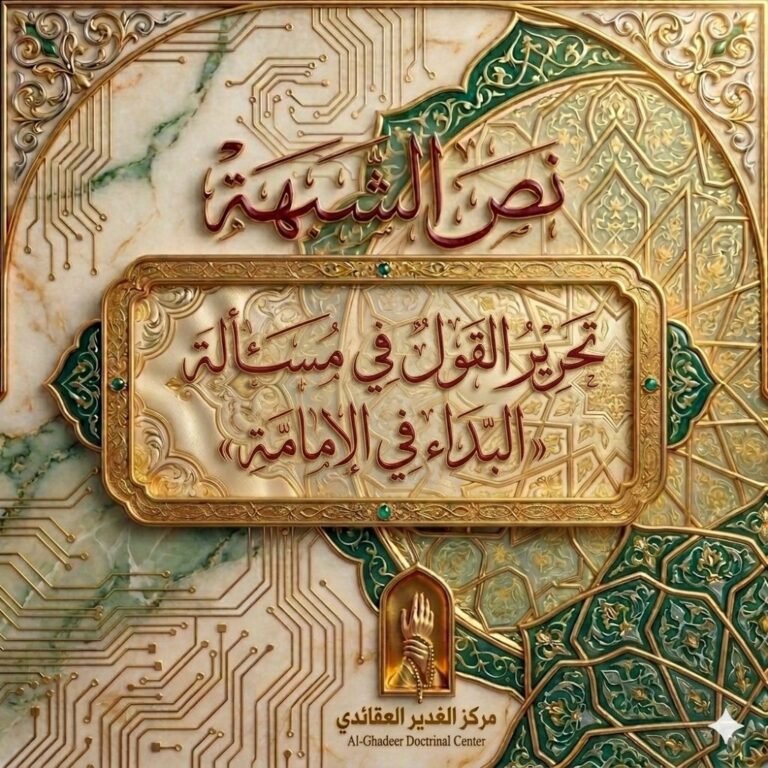 نَصَ الشُّبَهَة
تَحَرِيْرُ القَولُ فِي مُسَـَٔالَة
«البَدَاء فِي الإِمَامَّةِ»
مركز الغدير العقائدي
Al-Ghadeer Doctrinal Center